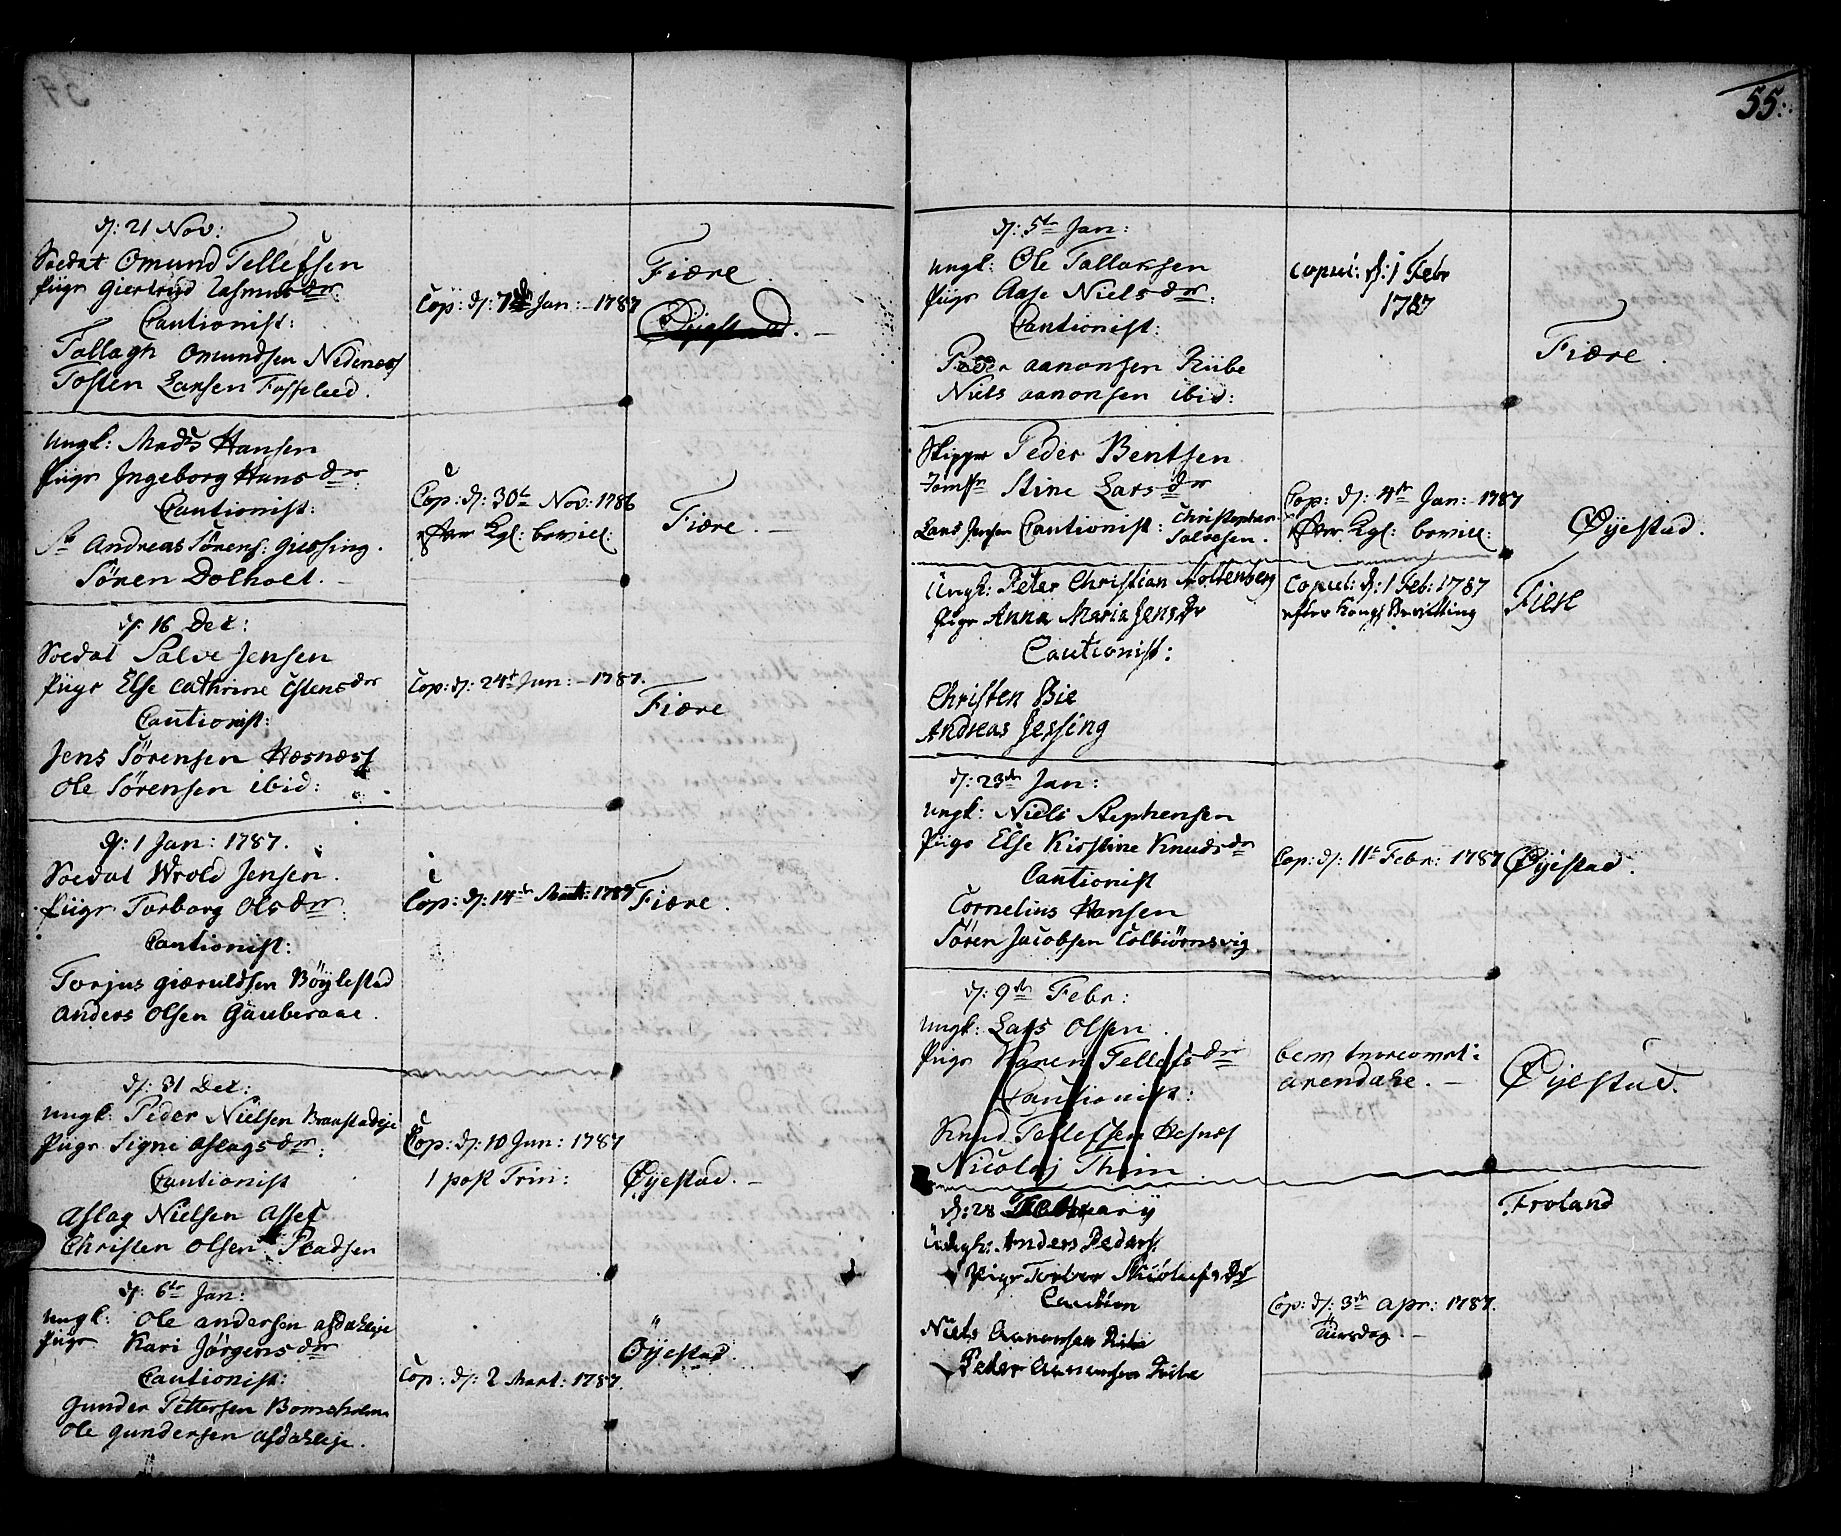 d: 21 Nov:
Soldat Omund Tellefsen
Piige Giertrud Rasmusdr:
Cautionist:
Tallagh Omundsen Nedenæss
Tosten Larsen Fosselied.
Cop: d: 7de Jan: - 1787
Fiære
Øijestad. -
Ungk: Mads Hansen
Piige Jngeborg Hansdr:
Cautionist:
Sr Andreas Sörens: Giessing.
Sören Dolholt. -
Cop: d: 30te Nov: 1786
efter Kgl: bevill:
Fiære. -
d. 16 Dec:
Soldat Salve Jensen
Piige Else Cathrine Ostensdr
Cautionist:
Jens Sörensen Hæsnæss
Ole Sörensen ibid:
Cop: d: 24de Jun: - 1787.
Fiære
d: 1 Jan: 1787.
Soldat Wrold Jensen.
Piige Torborg Olsdr:
Cautionist:
Torjus Giæruldsen Böylestad
Anders Olsen Gauberaae.
Cop: d: 14de Mart: 1787
Fiære.
d: 31 Dec:
Ungk: Peder Nielsen
Piige Signe Aslagsdr:
Cautionist
Aslag Nielsen
Christen Olsen Pladsen
Cop: d: 10 Jun: 1787
1 post Trin:
Øijestad. -
d. 6te Jan:
Ungk: Ole Andersen Asdahleje
Piige Kari Jörgensdr
Cautionist:
Gunder Pettersen Bomsholm
Ole Gundersen Asdahleje.
Cop: d: 2 Mart: 1787.
Øijestad.
55.
d: 5te Jan:
Ungk: Ole Tallaksen
Piige Aase Nielsdr:
Cautionist:
Peder Aanonsen Riibe
Niels Aanonsen ibid:
Copul: d: 1 Febr
1787
Fiære.
Skipper Peder Bentsen
Jomfr Stine Larsdr
Lars Jensen Cautionist: Christopher
Salvesen.
Cop: d: 4de Jan: - 1787
efter Kgl: bevill:
Øijestad.
Ungk: Peter Christian Moltenberg
Pige Anna Maria Jensdr
Cautionist:
Christen Bie
Andreas Jessing
Copul: d: 1 Feb: 1787
efter Kongs Bevilling
Fiere
d: 23de Jan:
Ungk: Niels Stephensen
Piige Else Kirstine Knudsdr
Cautionist
Cornelius Hansen
Sören Jacobsen Colbiörnsvig
Cop: d: 11te Febr: 1787
Øijestad.
d: 9de Febr:
Ungk: Lars Olsen
Piige Karen Tellefsdr
Cautionist:
Knud Tellefsen Resnes
Nicolaj Thim
Arendahl. -
Øijestad.
d: 28 February
Ungk: Anders Peders:
Pige
Caution
Niels Aanonsen Ribe
Peder Aanonsen Ribe
Cop: d: 3de Apr: 1787.
Tiirsdag. -
Froland